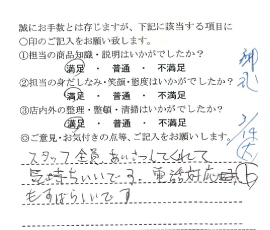 誠にお手数とは存じますが、下記に該当する項目に
○印のご記入をお願い致します。
①担当の商品知識・説明はいかがでしたか？
満足 ・ 普通 ・ 不満足
②担当の身だしなみ・笑顔・態度はいかがでしたか？
満足 ・ 普通 ・ 不満足
③店内外の整理・整頓・清掃はいかがでしたか？
満足 ・ 普通 ・ 不満足
◎ご意見・お気付きの点等、ご記入をお願いします。
スタッフ全員あいさつしてくれて
気持ちいいです。電話対応も
すばらしいです